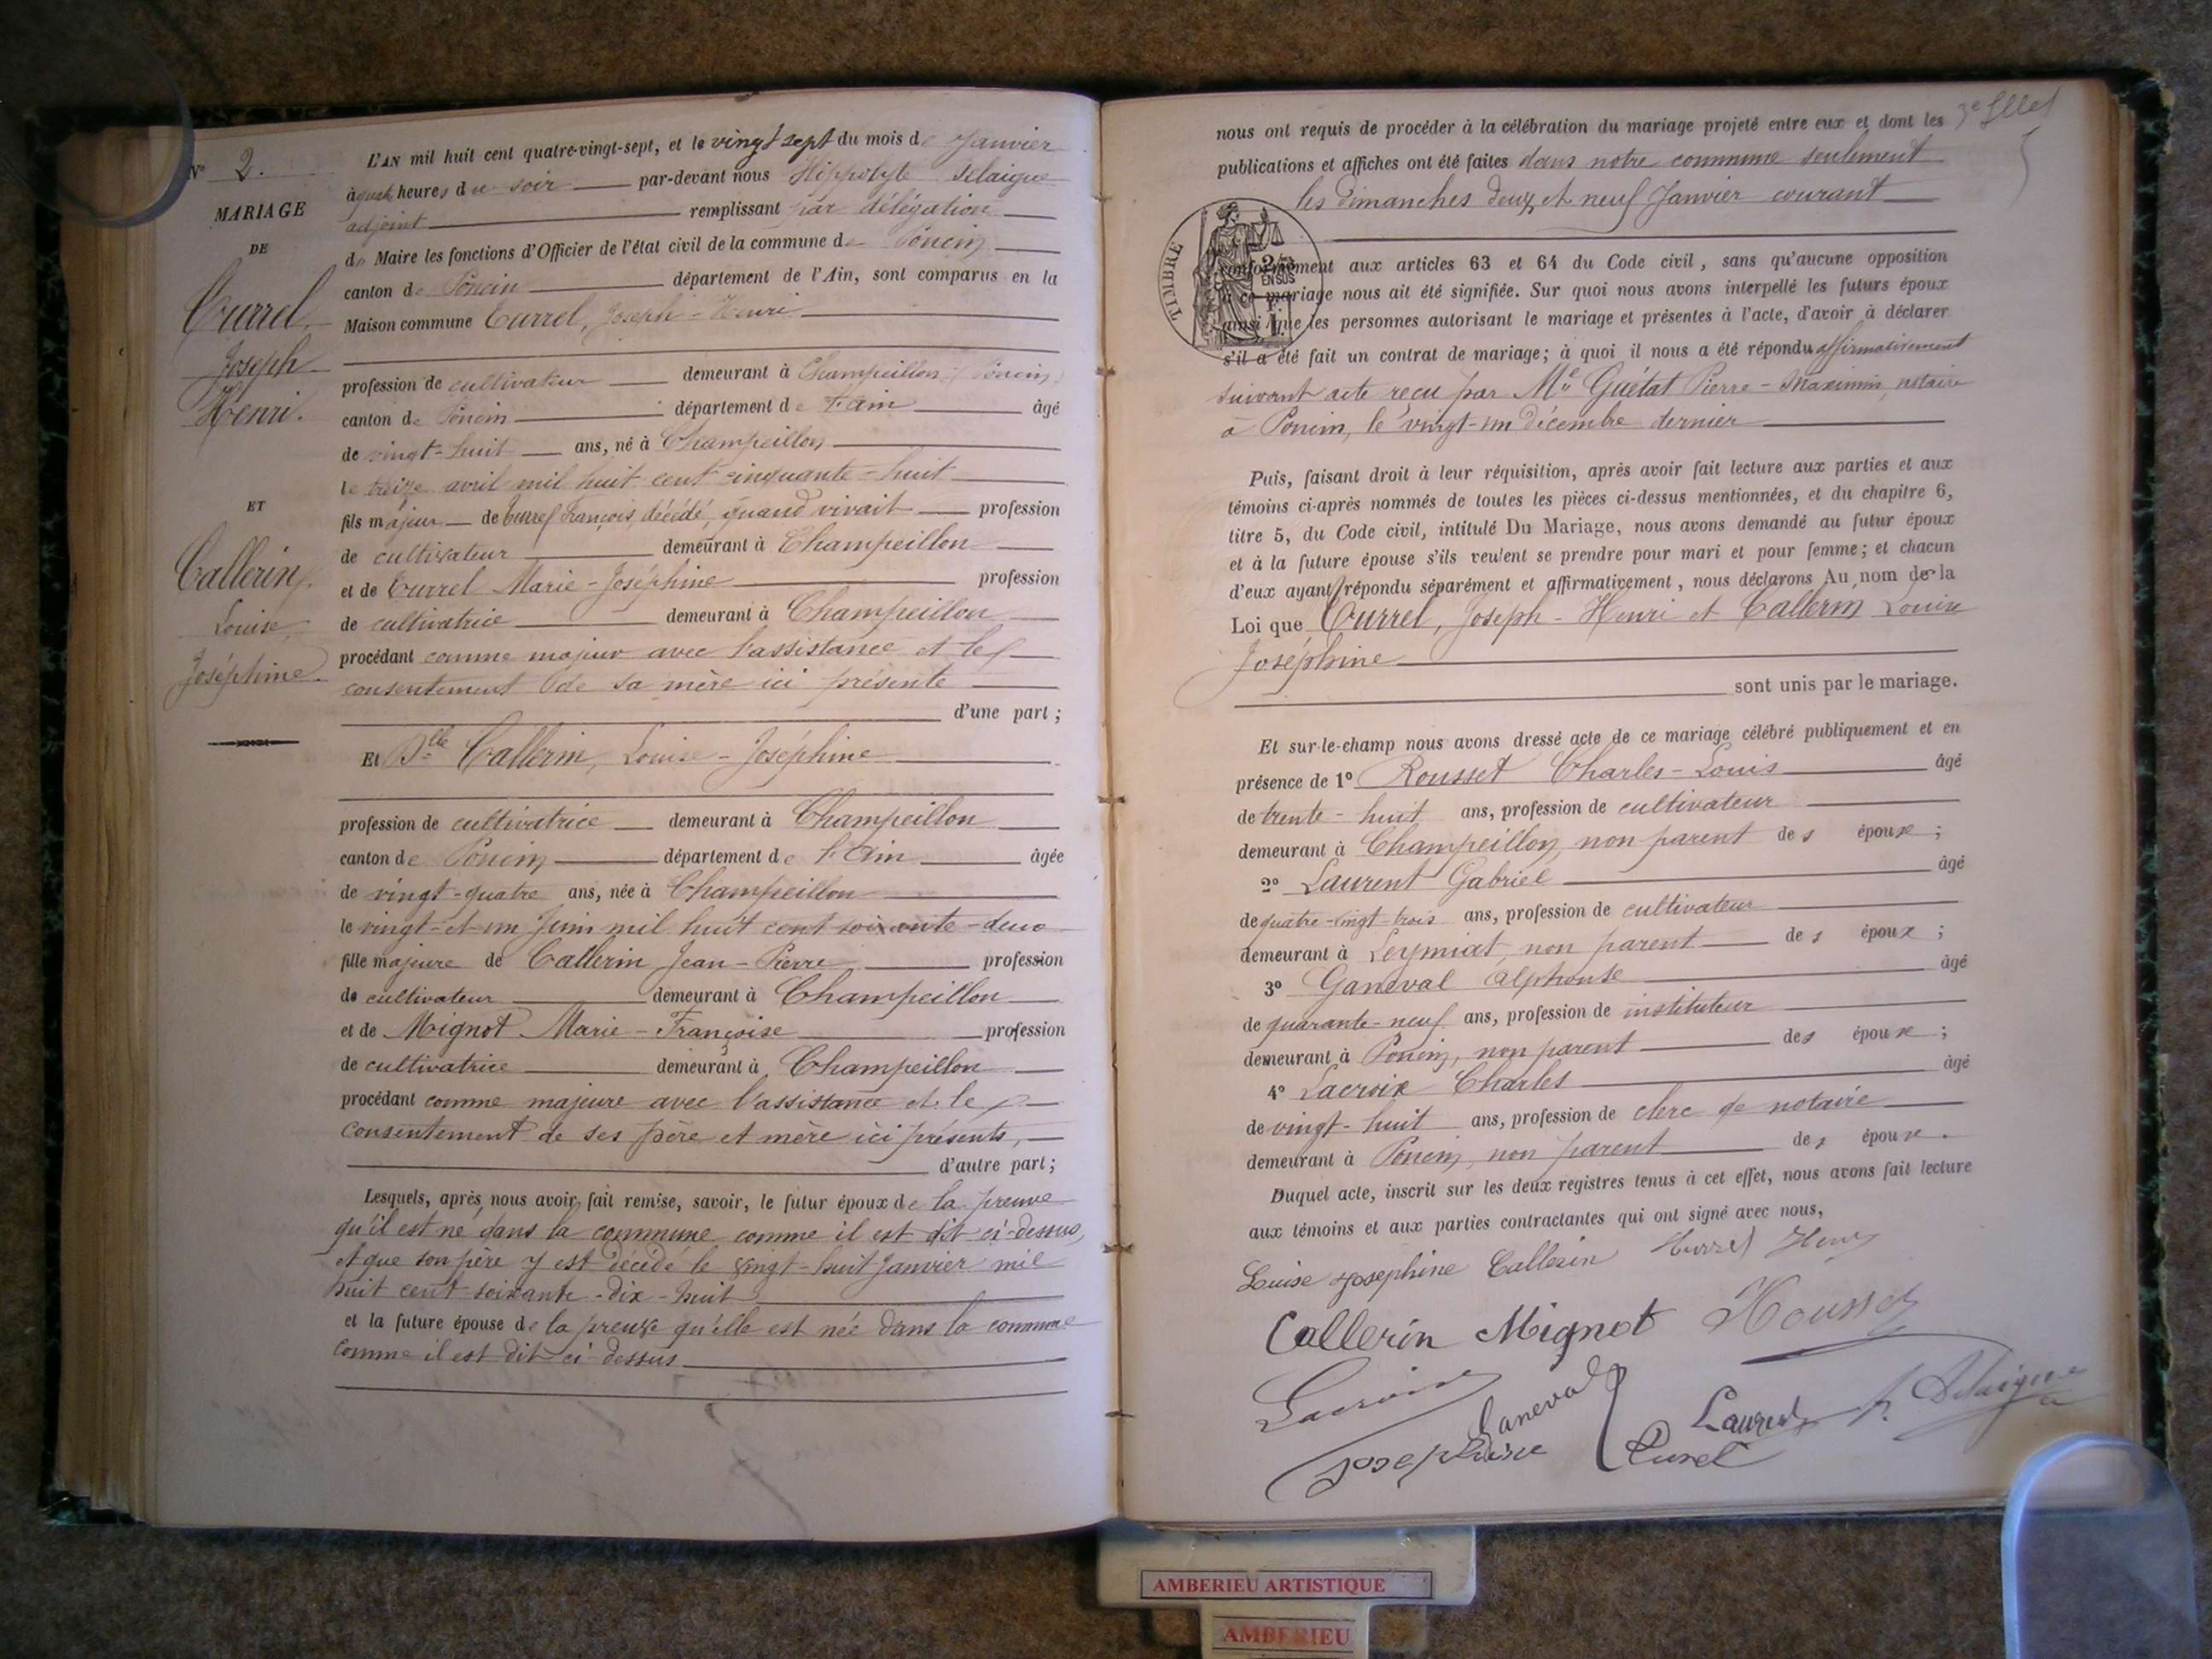 N° 2.
MARIAGE
DE
Turrel,
Joseph
Henri.
ET
Callerin,
Louise,
Joséphine
L'AN mil huit cent quatre-vingt-sept, et le vingt sept du mois de Janvier
à quatre heures du soir par-devant nous Hippolyte Delaigue
adjoint remplissant par délégation
de Maire les fonctions d'Officier de l'état civil de la commune de Poncin
canton de Poncin département de l'Ain, sont comparus en la
Maison commune Turrel, Joseph-Henri
profession de cultivateur demeurant à Champeillon (Poncin)
canton de Poncin département de l'Ain âgé
de vingt-huit ans, né à Champeillon
le treize avril mil huit cent cinquante-huit
fils majeur de Turrel François, décédé, quand vivait profession
de cultivateur demeurant à Champeillon
et de Turrel Marie-Joséphine profession
de cultivatrice demeurant à Champeillon
procédant comme majeur avec l'assistance et le
consentement de sa mère ici présente
d'une part;
Et Dlle Callerin, Louise-Joséphine
profession de cultivatrice demeurant à Champeillon
canton de Poncin département de l'Ain âgée
de vingt-quatre ans, née à Champeillon
le vingt-et-un Juin mil huit cent soixante-deux
fille majeure de Callerin Jean-Pierre profession
de cultivateur demeurant à Champeillon
et de Mignot Marie-Françoise profession
de cultivatrice demeurant à Champeillon
procédant comme majeure avec l'assistance et le
consentement de ses père et mère ici présents,
d'autre part;
Lesquels, après nous avoir fait remise, savoir, le futur époux de la preuve
qu'il est né dans la commune comme il est dit ci-dessus,
et que son père y est décédé le vingt-huit Janvier mil
huit cent soixante-dix-huit
et la future épouse de la preuve qu'elle est née dans la commune
comme il est dit ci-dessus
3e fllet
nous ont requis de procéder à la célébration du mariage projeté entre eux et dont les
publications et affiches ont été faites dans notre commune seulement
les dimanches deux et neuf Janvier courant
TIMBRE
2/5
EN SUS
conformément aux articles 63 et 64 du Code civil, sans qu'aucune opposition
à ce mariage nous ait été signifiée. Sur quoi nous avons interpellé les futurs époux
ainsi que les personnes autorisant le mariage et présentes à l'acte, d'avoir à déclarer
s'il a été fait un contrat de mariage; à quoi il nous a été répondu affirmativement
suivant acte reçu par Me Guétat Pierre-Maximin, notaire
à Poncin, le vingt-un décembre dernier
Puis, faisant droit à leur réquisition, après avoir fait lecture aux parties et aux
témoins ci-après nommés de toutes les pièces ci-dessus mentionnées, et du chapitre 6,
titre 5, du Code civil, intitulé Du Mariage, nous avons demandé au futur époux
et à la future épouse s'ils veulent se prendre pour mari et pour femme; et chacun
d'eux ayant répondu séparément et affirmativement, nous déclarons Au nom de la
Loi que Turrel, Joseph-Henri et Callerin Louise
Joséphine
sont unis par le mariage.
Et sur-le-champ nous avons dressé acte de ce mariage célébré publiquement et en
présence de 1° Rousset Charles-Louis âgé
de trente-huit ans, profession de cultivateur
demeurant à Champeillon, non parent des époux;
2° Laurent Gabriel âgé
de quatre-vingt-trois ans, profession de cultivateur
demeurant à Leymiat, non parent des époux;
3° Ganeval Alphonse âgé
de quarante-neuf ans, profession de instituteur
demeurant à Poncin, non parent des époux;
4° Lacroix Charles âgé
de vingt-huit ans, profession de clerc de notaire
demeurant à Poncin, non parent des époux.
Duquel acte, inscrit sur les deux registres tenus à cet effet, nous avons fait lecture
aux témoins et aux parties contractantes qui ont signé avec nous,
Louise Josephine Callerin Turrel Henry
Callerin Mignot Rousset
Lacroix Ganeval Laurent h. Delaigue
Josephine Turel
AMBERIEU ARTISTIQUE
AMBERIEU